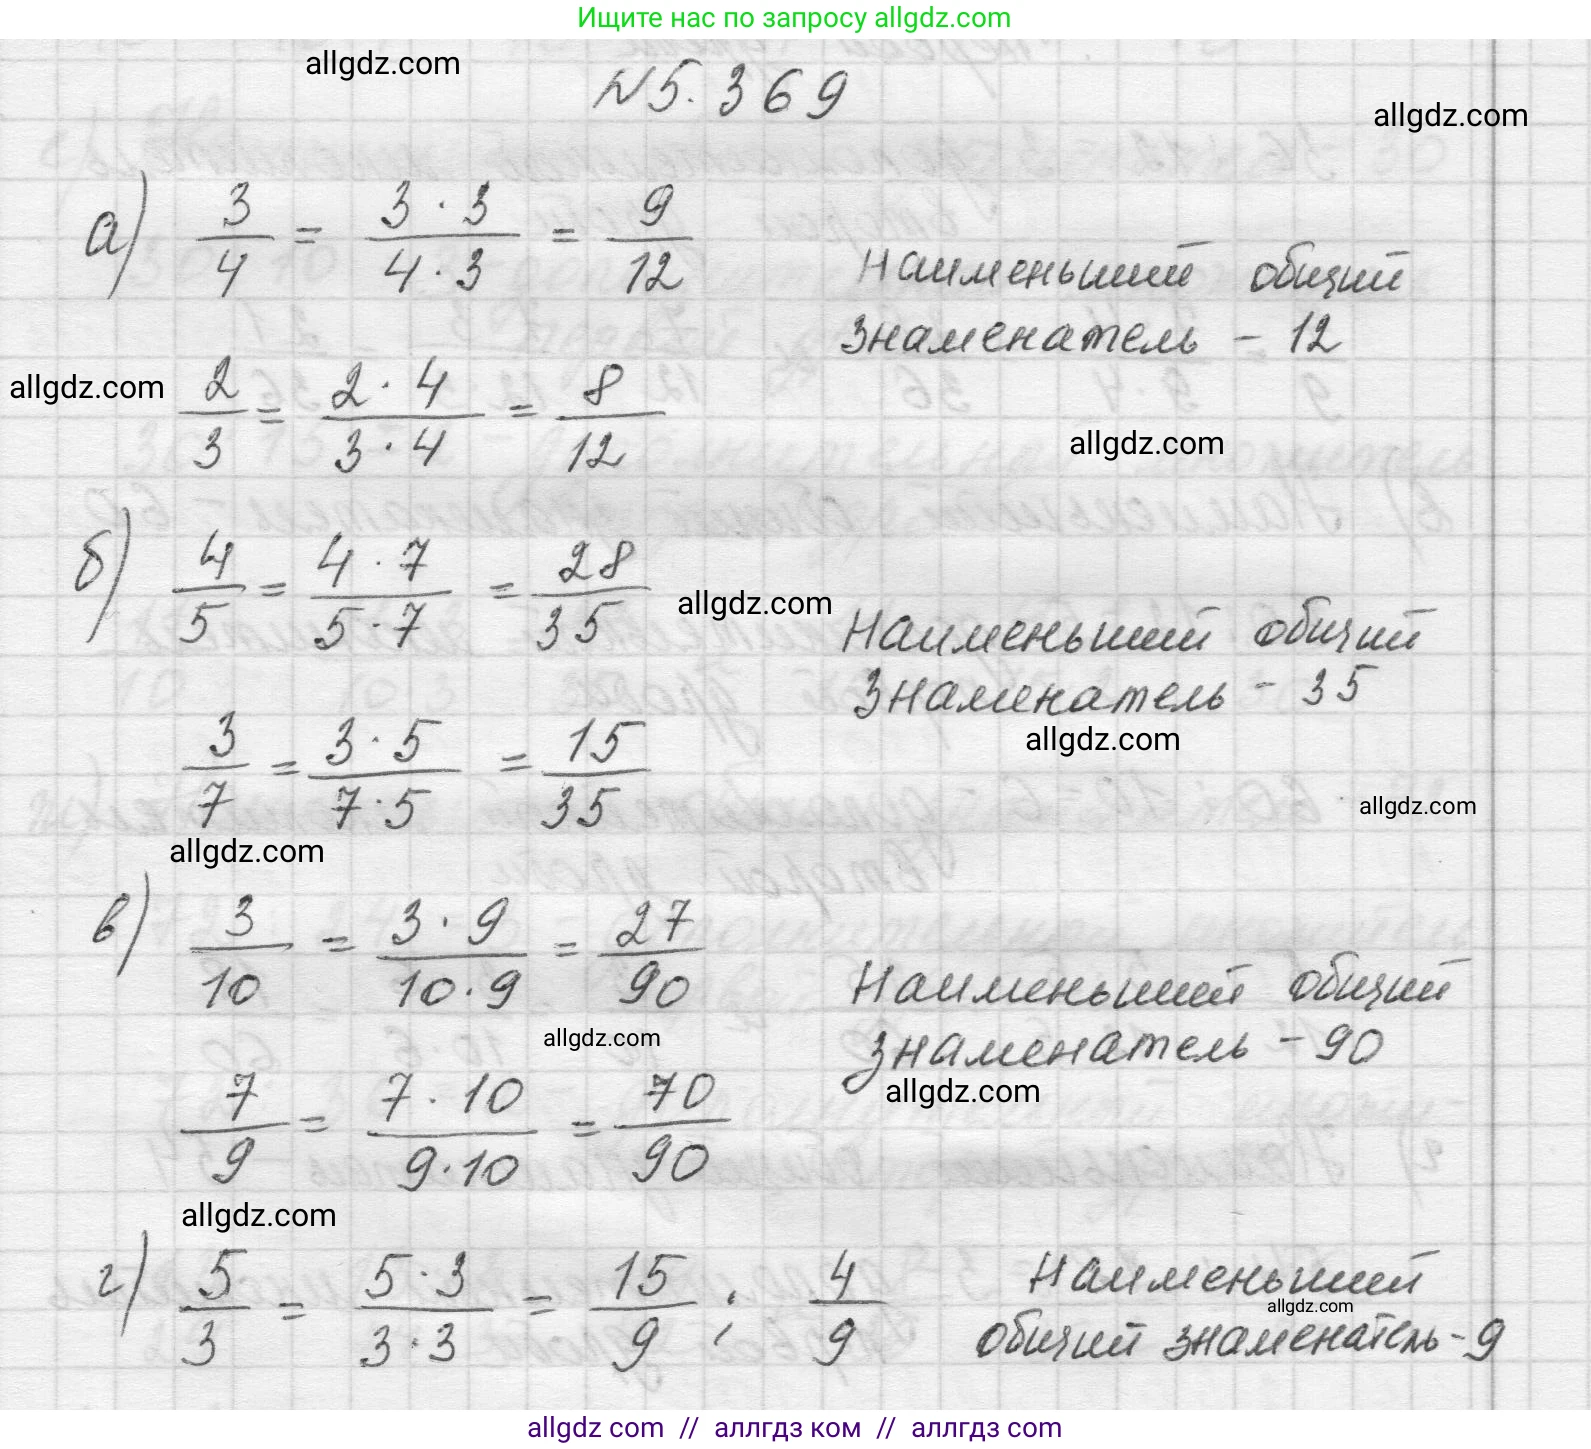 Ищите нас по запросу allgdz.com
allgdz.com
№5.369
allgdz.com
а) 3/4 = 3·3/4·3 = 9/12
Наименьший общий
знаменатель - 12
allgdz.com
2/3 = 2·4/3·4 = 8/12
allgdz.com
б) 4/5 = 4·7/5·7 = 28/35
allgdz.com
Наименьший общий
знаменатель - 35
allgdz.com
3/7 = 3·5/7·5 = 15/35
allgdz.com
allgdz.com
в) 3/10 = 3·9/10·9 = 27/90
Наименьший общий
знаменатель - 90
allgdz.com
allgdz.com
7/9 = 7·10/9·10 = 70/90
allgdz.com
г) 5/3 = 5·3/3·3 = 15/9 ; 4/9
Наименьший
allgdz.com
общий знаменатель - 9
allgdz com // аллгдз ком // allgdz com